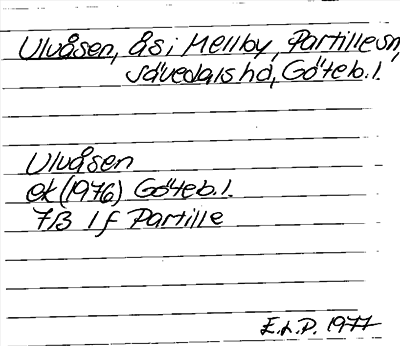 Ulvåsen, ås i Mellby, Partille sn,
Sävedals hd, Göteb. l.
Ulvåsen
ek (1976) Göteb. l.
7B 1 f Partille
E.L.P. 1977